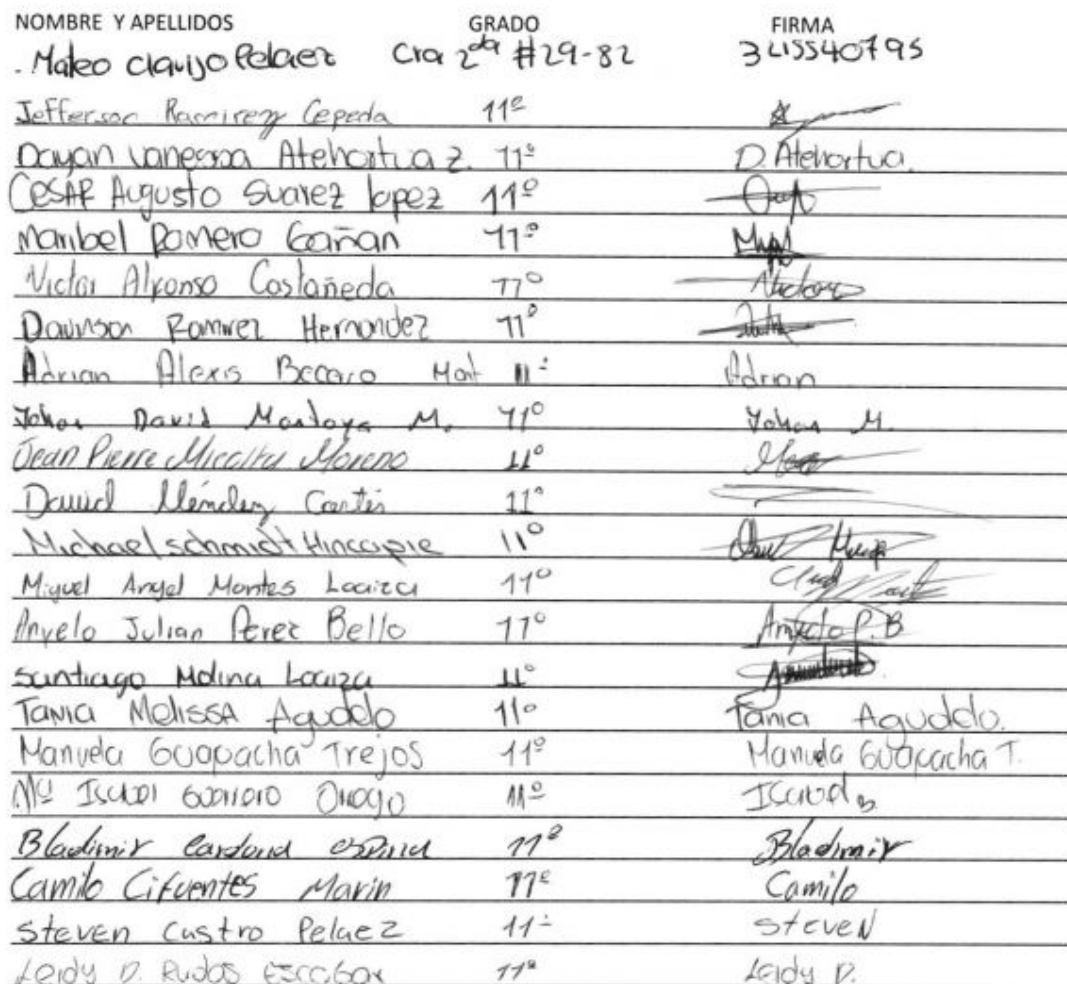 NOMBRE Y APELLIDOS GRADO FIRMA
. Mateo Clavijo Pelaez Cra 2da #29-82 3215540795
Jefferson Ramirez Cepeda 11º
Dayan Vanessa Atehortua z. 11º D. Atehortua.
CESAR Augusto Suarez lopez 11º
Maribel Romero Gañan 11º
Victor Alfonso Castañeda 11º
Dawnson Ramirez Hernandez 11º
Adrian Alexis Becaro Mat 11º Adrian
Johan David Montoya M. 11º Johan M.
Jean Pierre Micolta Moreno 11º
David Méndez Cortés 11º
Michael schmidt Hincapie 11º
Miguel Angel Montes Loaiza 11º
Anyelo Julian Perez Bello 11º Anyelo P.B
Santiago Molina Loaiza 11º
Tania Melissa Agudelo 11º Tania Agudelo.
Manuela Guapacha Trejos 11º Manuela Guapacha T.
Mº Isabel 11º Isabel
Bladimir Cardona ospina 11º Bladimir
Camilo Cifuentes Marin 11º Camilo
Steven Castro Pelaez 11º Steven
Leidy D. Rudas Escobar 11º Leidy D.